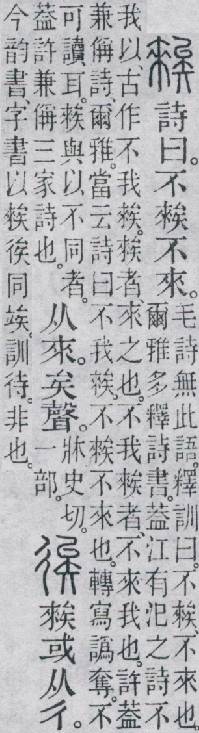 𥏳詩曰。不𥏳不來。
毛詩無此語。釋訓曰。不𥏳、不來也。
爾雅多釋詩書。葢江有汜之詩不
我以古作不我𥏳。𥏳者、來之也。不我𥏳者、不來我也。許葢
兼偁詩、爾雅。當云詩曰不我𥏳。不𥏳、不來也。轉寫譌奪。不
可讀耳。𥏳與以不同者。
葢許兼偁三家詩也。
从來。矣聲。
牀史切。
一部。
𢓪𥏳或从彳。
今韵書字書以𥏳𢓪同竢。訓待。非也。